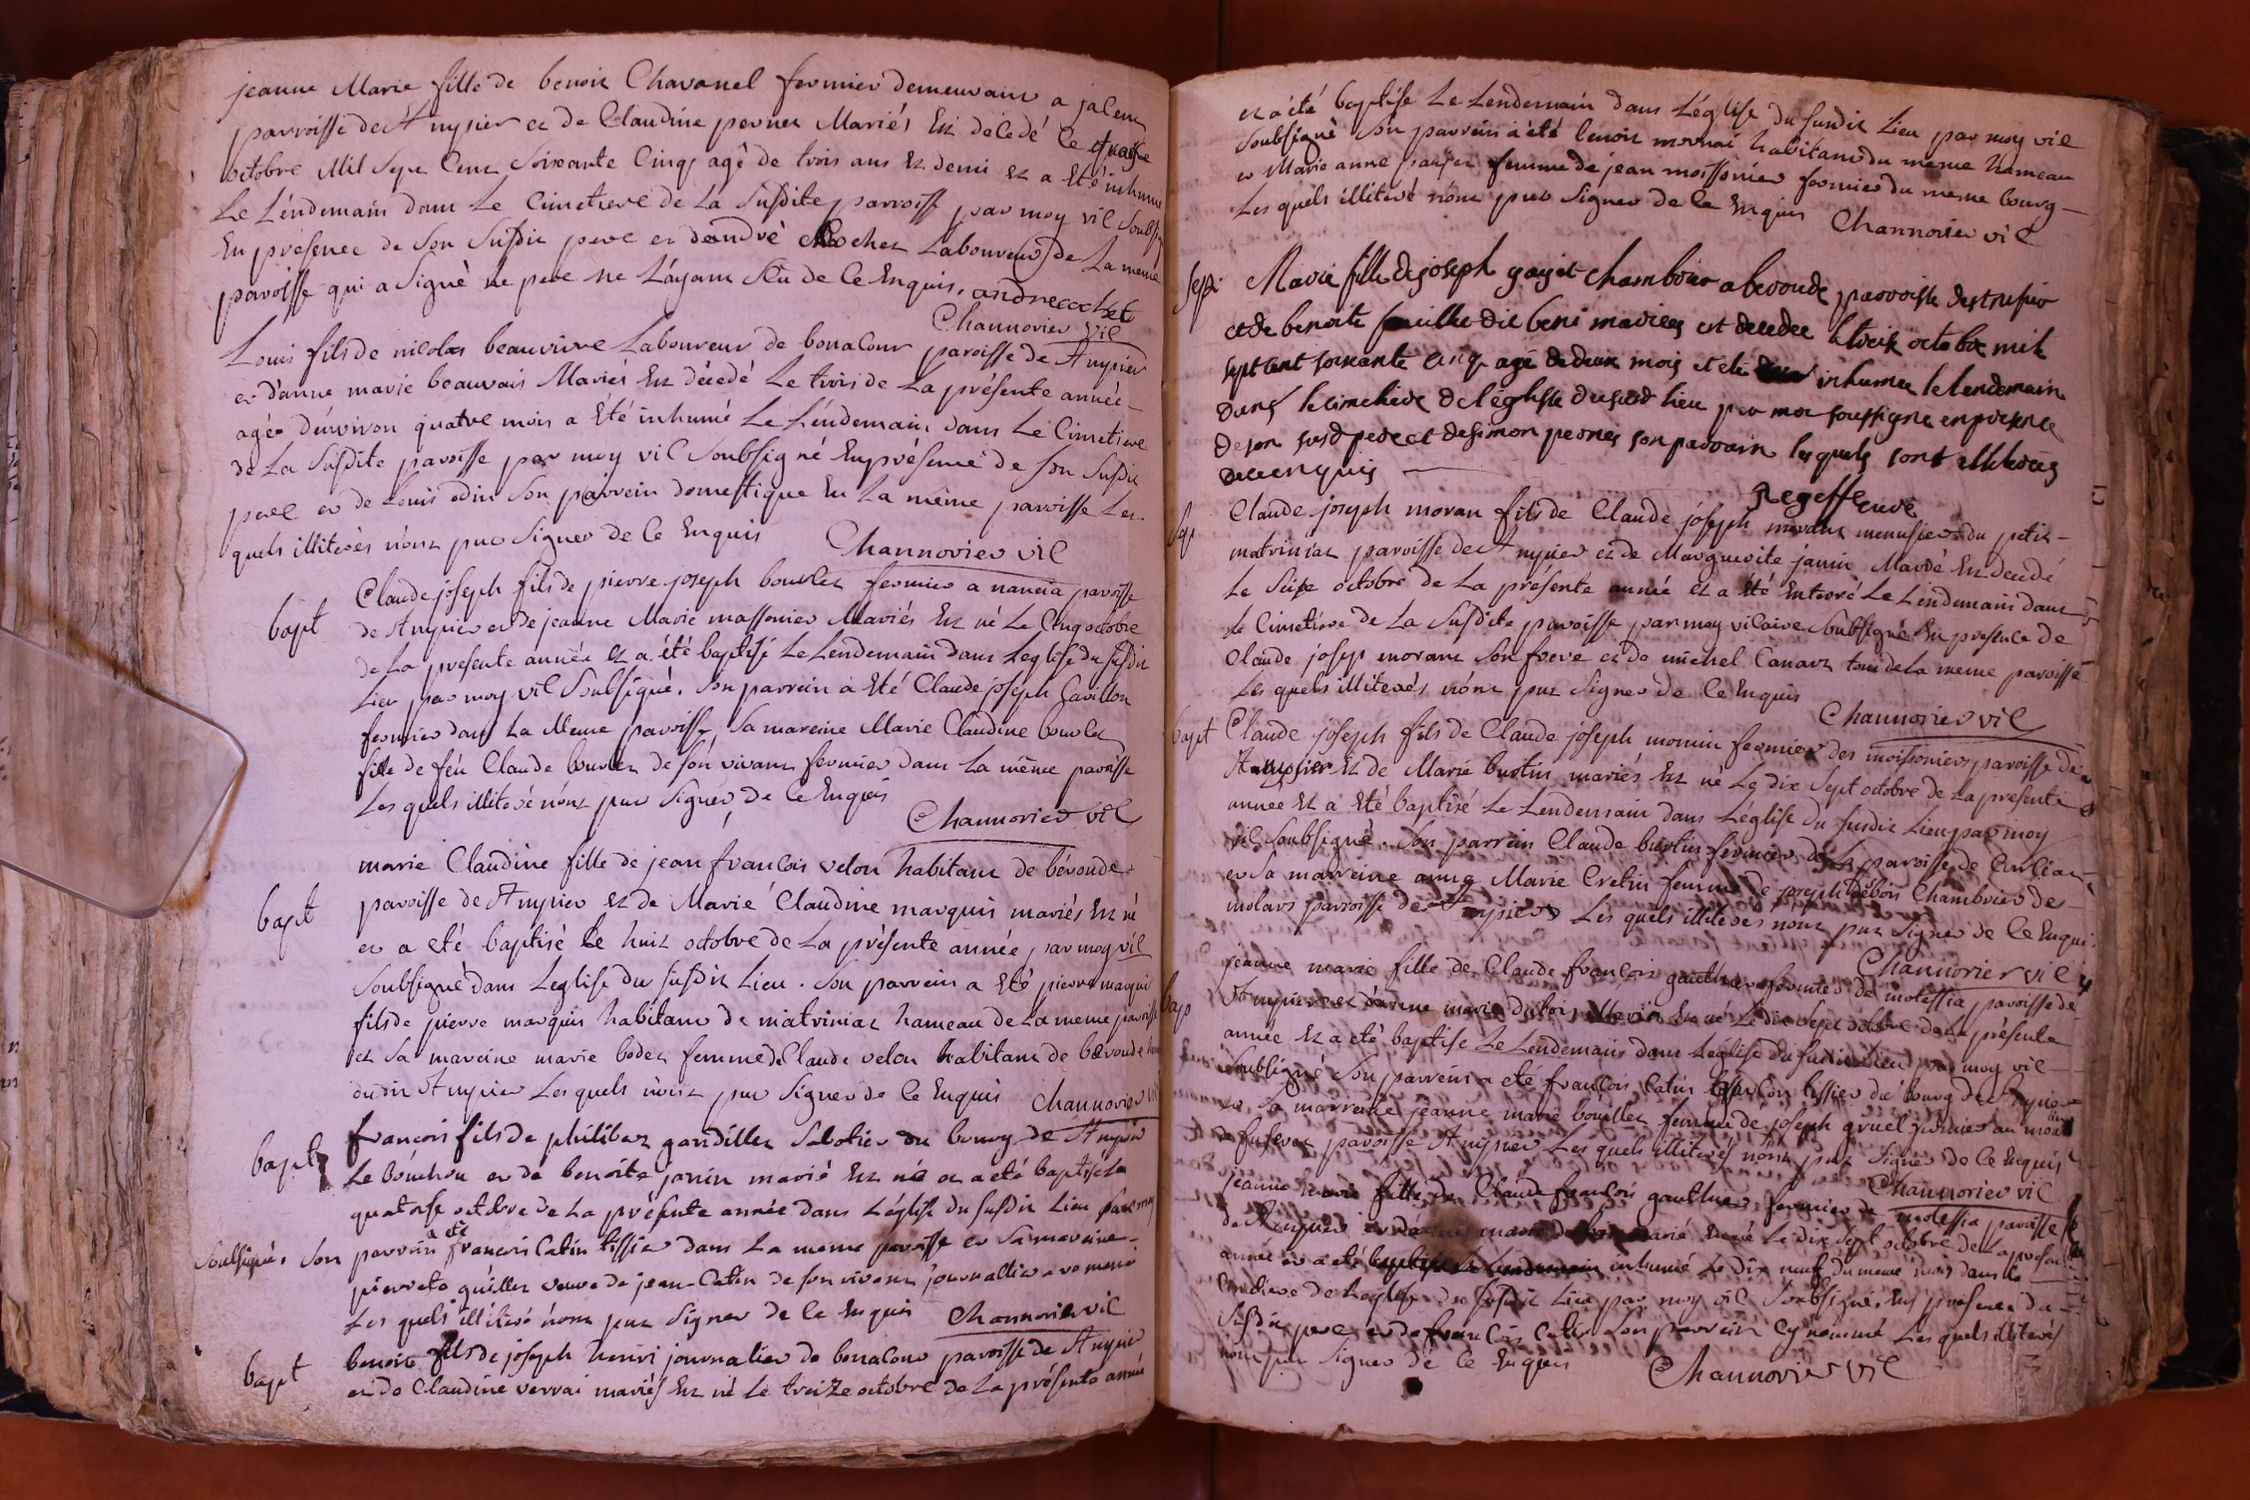 jeanne Marie fille de benoit Chavanel fermier demeurant a jalem
parroisse de St nyzier et de Claudine pernet Mariés Est décédé Le quatre
octobre Mil Sept Cent Soixante Cinq agé de trois ans et demi et a Eté inhumé
Le Lendemain dans Le Cimetiere de La Susdite parroisse par moy vic Soubsig
En présence de Son Susdit pere et dandré Cochet Laboureur de La meme
paroisse qui a Signé Le pere ne Layant Sçu de Ce Enquis. andrecochet
Channorier vic
Louis fils de nicolas beauvivre Laboureur de bonacour paroisse de St nyzier
et danne marie beauvais Mariés Est décedé Le trois de La présente année
agé denviron quatre mois a Eté inhumé Le Lendemain dans Le Cimetiere
de La Susdite paroisse par moy vic Soubsigné En présence de Son Susdit
pere et de Louis odin Son parrein domestique En La même paroisse Les
quels illiterés nónt pue Signer de Ce Enquis Channorier vic
bapt
Claude joseph fils de pierre joseph bourlet fermier a nancia paroisse
de St nyzier et de jeanne Marie massonier Mariés Est né Le Cinq octobre
de La presente année et a été baptisé Le Lendemain dans Leglise du susdit
Lieu par moy vic Soubsigné. Son parrein a Eté Claude joseph Gavillon
fermier dans La Meme paroisse Sa mareine Marie Claudine bourlet
fille de feu Claude bourlet de són vivant fermier dans La même paroisse
Les quels illiteré nónt pue Signér de Ce Enquis
Channorier vic
bapt
marie Claudine fille de jean francois velon habitant de béronde
paroisse de St nyzier et de Marie Claudine marquis mariés Est né
et a eté baptisé Le huit octobre de La présente année par moy vic
Soubsigné dans Leglise du susdit Lieu. Son parrein a Eté pierre marqui
fils de pierre marquis habitant de matriniat hameau de La meme paroisse
et Sa mareine marie bodet femme de Claude velon habitant de béronde
dudit St nyzier Les quels nónt pue Signer de Ce Enquis Channorier vi
bapt
francois fils de philibert gandillet Sabotier du bourg de St nyzier
Le bouchou et de benoite janin marié Est né et a eté baptisé Le
quatorse octobre de La présente année dans Léglise du susdit Lieu par moy
Soubsignés Son parrein a été francois Catin tissier dans La meme paroisse et Sa mareine
pierrete quillet veuve de jean Catin de son vivant journallier a romené
Les quels illiteré nónt pue Signer de Ce Enquis Channorier vic
bapt
benoit fils de joseph henri journalier de bonacour paroisse de St nyzier
et de Claudine verrai mariés Est né Le treize octobre de La présente année
et a été baptisé Le Lendemain dans Léglise du susdit Lieu par moy vic
Soubsigné Son parrein a été benoit monnai habitant du meme hameau
et Marie anne femme de jean moissonier fermier du meme bourg
Les quels illiteré nónt pue Signer de Ce Enquis Channorier vic
Sept
Marie fille de joseph goyat chambrier a beronde parroisse de st nisier
et de benoite dit beni mariées est decedee le treize octobre mil
sept cent soixante cinq agé de deux mois et été inhumee le lendemain
dans le cimetiere de léglise du susd lieu par moi soussigné en presence
de son susd pere et de simon pernet son parrain lesquels sont illiterées
de ce enquis
Regeffe curé
Sep
Claude joseph moran fils de Claude joseph morant menusier du petit
matriniat paroisse de St nyzier et de Marguerite janin Marié Est décedé
Le Seize octobre de La présente année et a été Enterré Le Lendemain dans
Le Cimetiere de La Susdite paroisse par moy vicaire Soubsigné En presence de
Claude josep morant Son frere et de michel Canard tous de La meme paroisse
Les quels illiterés nónt pue Signer de Ce Enquis
Channorier vic
bapt
Claude joseph fils de Claude joseph monin fermier des moissoniers paroisse de
St nyzier Et de Marie burtin mariés Est né Le dix Sept octobre de La presente
annee Et a Eté baptisé Le Lendemain dans Léglise du susdit Lieu par moy
vic Soubsigné. Son parrein Claude burtin fermier de La paroisse de Curtiat
et Sa marreine anne Marie Cretin femme de joseph debois Chambrier de
molars paroisse de St nyzier Les quels illiterés nónt pue Signer de Ce Enquis
Channorier vic
bap
jeanne marie fille de Claude francois gauthier fermier de molessia paroisse de
St nyzier et danne marie dubois Marié Est né Le dix Sept octobre de La présente
année Et a eté baptisé Le Lendemain dans Léglise du susdit Lieu par moy vic
Soubsigné Son parrein a eté françois Catin tissier du bourg de St nyzier
et Sa marreine jeanne marie bouillet femme de joseph gruel fermier au
paroisse St nyzier Les quels illiterés nónt pue Signer de Ce Enquis
Channorier vic
jeanne marie fille de Claude françois gauthier fermier de molessia paroisse
de St nyzier et danne marie dubois marié Est né Le dix Sept octobre de La présente
année et a été inhumé Le dix neuf du meme mois dans le
Cimetiere de Leglise du susdit Lieu par moy vic Soubsigné. En présence du
Susdit pere et de francois Catin Són parrein Cy nommé Les quels illiterés
nónt pue Signer de Ce Enquis Channorier vic